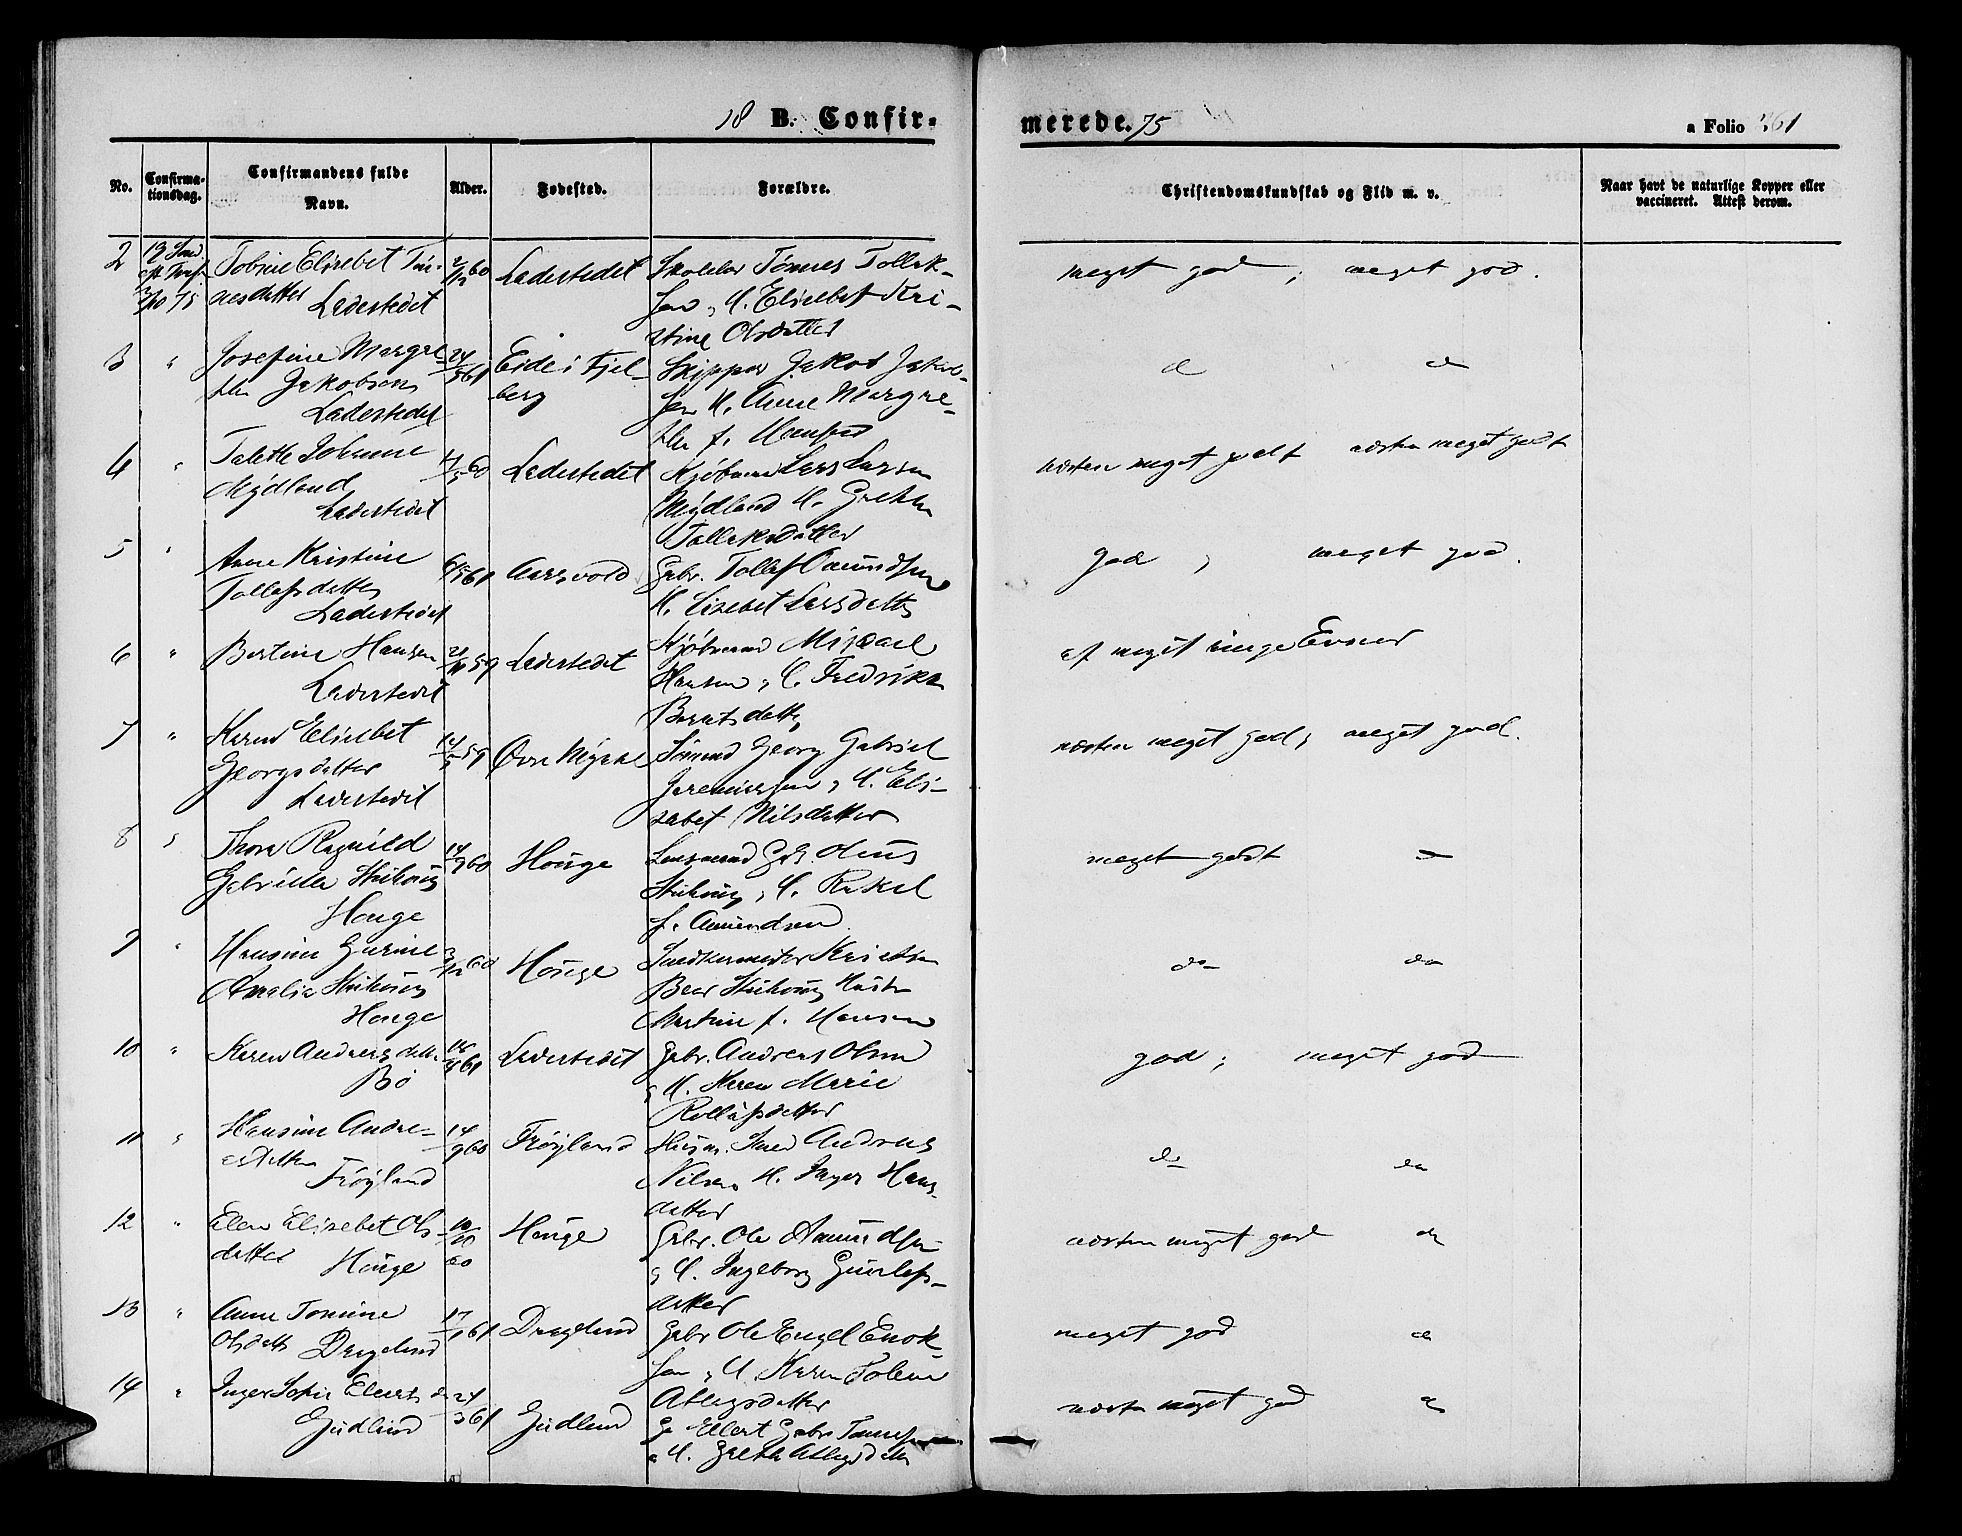 18 B. Confir-
merede. 75
a Folio 261
No.
Confirma-
tionsdag.
Confirmandens fulde
Navn.
Alder.
Fødested.
Forældre.
Christendomskundskab og Flid m. v.
Naar havt de naturlige Kopper eller
vaccineret. Attest derom.
2 19 Sind eft Tref 3/10 75
Tobine Elisebet Tön-
nesdatter
Ladestedet
2/12 60
Ladestedet
Skolelær Tönnes Tollak-
sen, H. Elisebet Kri-
stine Olsdatter
meget god; meget god.
3 "
Josefine Margre-
the Jakobsen
Ladestedet
24/3 61
Eide i Fjel-
berg
Skipper Jakob Jakob-
sen H. Anne Margre-
the f. Hansen
d d
4 "
Talette Johanne
Mydland
Ladestedet
Ladestedet
Kjöbmand Lars Larsen
Mydland H. Grethe
Tollaksdatter
næsten meget godt næsten meget godt
5 "
Anne Kristine
Tollefsdatter
Ladestedet
61
Aarsvold
Gbr. Tollef Omundsen
H. Lisebet Larsdatter
God, meget god.
6 "
Bertine Hansen
Ladestedet
59
Ladestedet
Kjöbmand Mikael
Hansen, H. Fredrikke
Berntsdatter
af meget ringe Evner
7 "
Karen Elisebet
Georgsdatter
Ladestedet
59
Øvre Mysse
Sömand Georg Gabriel
Jeremiassen, H. Eli-
sabet Nilsdatter
næsten meget god, meget god.
8 "
Thora Ragnild
Gabrielle Stuhoug
Houge
14/9 60
Houge
Lensmand Gbr. Olaus
Stuhoug, H. Rakel
f. Amundsen
meget godt d
9 "
Hansine Gurine
Amalie Stuhoug
Houge
3/12 60
Houge
Snedkermester Kristen
Beer Stuhoug Hustr
Martine f. Hansen
do do
10 "
Karen Andreasdatt.
Bö
61
Ladestedet
Gbr. Andreas Olsen
, H. Karen Marie
Rollafsdatter
god; meget god
11 "
Hansine Andre-
asdatter
Fröyland
14/9 60
Fröyland
Husm. Smed Andreas
Nilsen H. Inger Hans-
datter
do do
12 "
Elen Elisebet Ols-
datter
Houge
10/10 60
Houge
Gbr. Ole Aamundsen
, H. Ingeborg Gunlefs-
datter
næsten meget god do
13 "
Anne Tomine
Olsdatt
Drageland
17/1 61
Dragelund
Gbr Ole Engel Enok-
sen, H Karen Tolene
Atlagsdatter
meget god d
14 "
Inger Sofie Elerts d.
Gudlend
24/3 61
Gudlend
G. Ellert Gabr. Tannesen
, H. Grethe Atlagsdatter
næsten meget god d